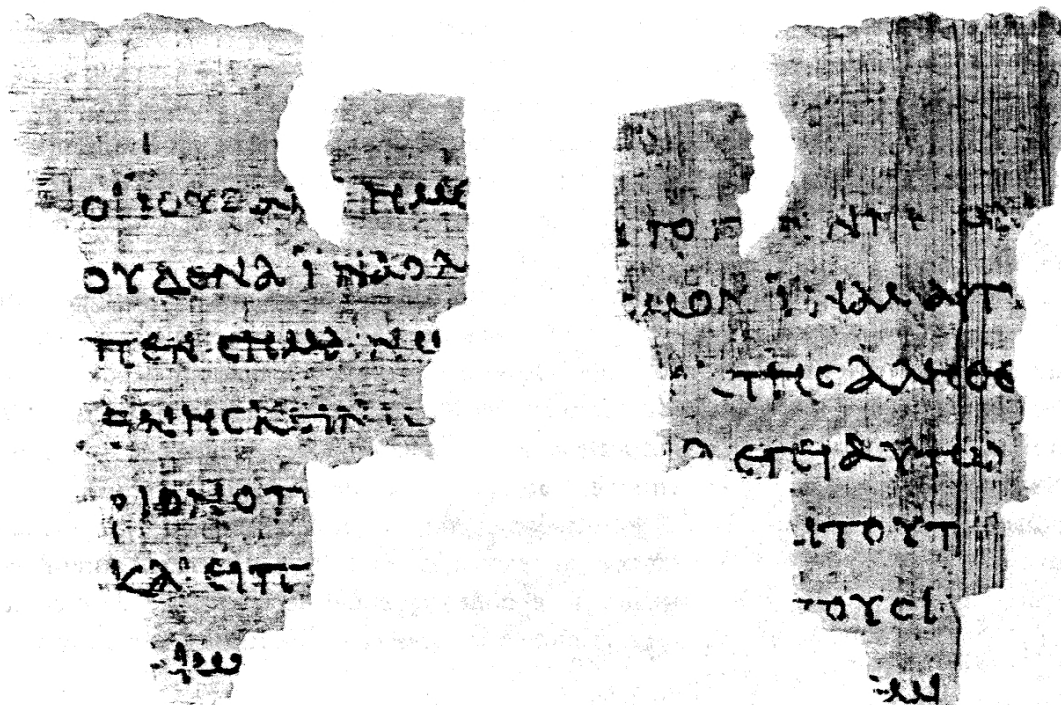 ΟΙ ΙΟΥΔΑΙ ΗΜΕ
ΟΥΔΕΝΑ ΪΝΑ Ο Λ
ΠΕΝ ϹΗΜΑΙΝΩ
ΘΝΗϹΚΕΙΝ ΙϹ
ΡΙΟΝ Ο Π
ΚΑΙ ΕΙΠ
ΤΟ ΓΕΓΕΝΝΗΜΑΙ
ϹΜΟΝ ΪΝΑ ΜΑΡΤΥ
ΤΗϹ ΑΛΗΘΕ
ΛΕΓΕΙ ΑΥΤΩ
ΑΙ ΤΟΥΤ
ΤΟΥϹ Ι
ΕΜΙ